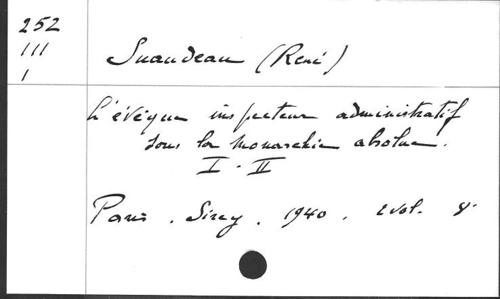 252
III
I
Suaudeau (René)
L'évêque inspecteur administratif
sous la monarchie absolue.
I - II
Paris. Sirey. 1940. 2 vol. 8°